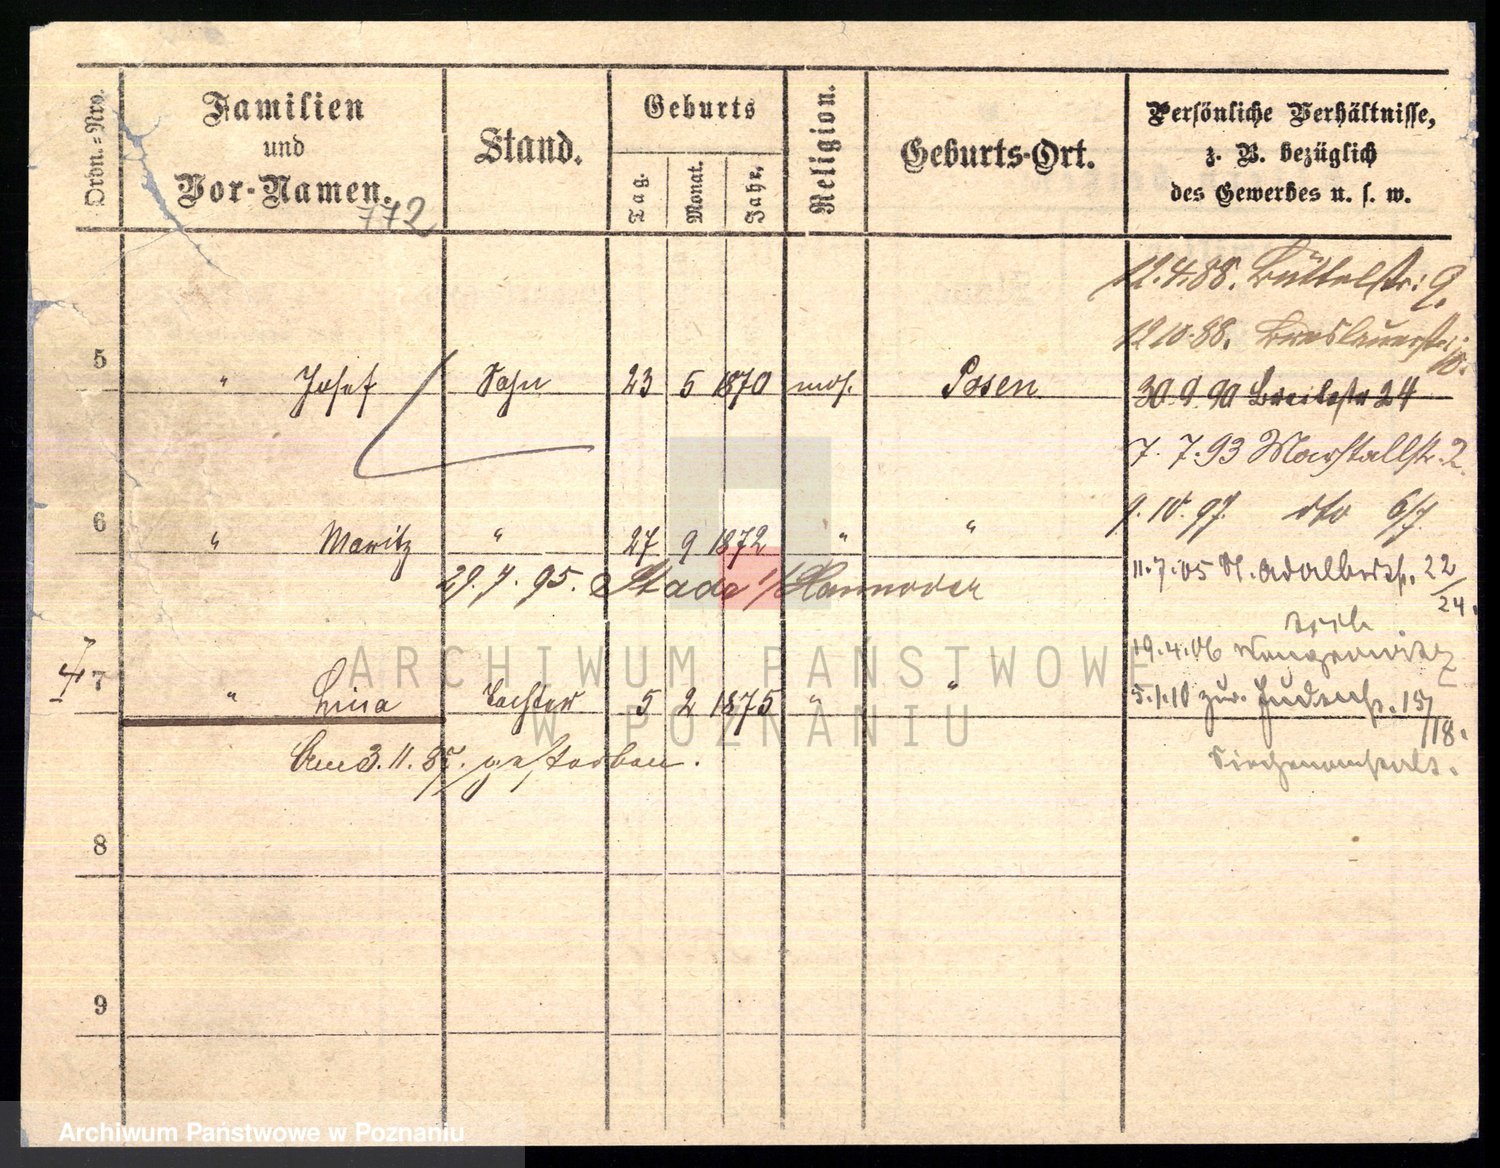 Ordn.=Nro.
Familien
und
Vor-Namen.
772
Stand.
Geburts
Tag.
Monat.
Jahr.
Religion.
Geburts-Ort.
Persönliche Verhältnisse,
z. B. bezüglich
des Gewerbes u. s. w.
12.4.88. Büttelstr: 9.
12.10.88. Breslauerstr:
10.
5 " Josef Sohn 23 5 1870 mos. Posen
30.9.90 Breitestr 24
7.7.93 Marstallstr. 2.
9.10.97. dto 6/7.
6 " Moritz " 27 9 1872 " "
29.7.95. Stade i/Hannover
11.7.05 St. Adalbertstr. 22/24.
19.4.06
7 " Lina Tochter 5 2 1875 " "
5.1.10 zur. Judenstr. 15/18.
Am 3.11.87. gestorben.
Siechenanstalt.
8
9
ARCHIWUM PAŃSTWOWE
W POZNANIU
Archiwum Państwowe w Poznaniu